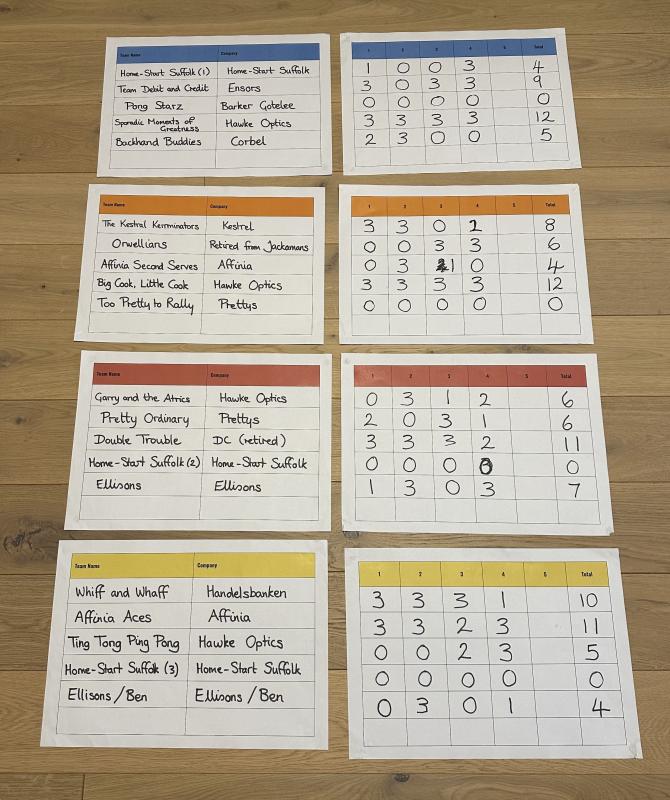 Team Name Company 1 2 3 4 5 Total
Home-Start Suffolk (1) Home-Start Suffolk 1 0 0 3 4
Team Debit and Credit Ensors 3 0 3 3 9
Pong Starz Barker Gotelee 0 0 0 0 0
Sporadic Moments of Greatness Hawke Optics 3 3 3 3 12
Backhand Buddies Corbel 2 3 0 0 5
Team Name Company 1 2 3 4 5 Total
The Kestral Kerminators Kestrel 3 3 0 2 8
Orwellians Retired from Jackamans 0 0 3 3 6
Affinia Second Serves Affinia 0 3 1 0 4
Big Cook, Little Cook Hawke Optics 3 3 3 3 12
Too Pretty to Rally Prettys 0 0 0 0 0
Team Name Company 1 2 3 4 5 Total
Garry and the Atrics Hawke Optics 0 3 1 2 6
Pretty Ordinary Prettys 2 0 3 1 6
Double Trouble DC (retired) 3 3 3 2 11
Home-Start Suffolk (2) Home-Start Suffolk 0 0 0 0 0
Ellisons Ellisons 1 3 0 3 7
Team Name Company 1 2 3 4 5 Total
Whiff and Whaff Handelsbanken 3 3 3 1 10
Affinia Aces Affinia 3 3 2 3 11
Ting Tong Ping Pong Hawke Optics 0 0 2 3 5
Home-Start Suffolk (3) Home-Start Suffolk 0 0 0 0 0
Ellisons/Ben Ellisons/Ben 0 3 0 1 4